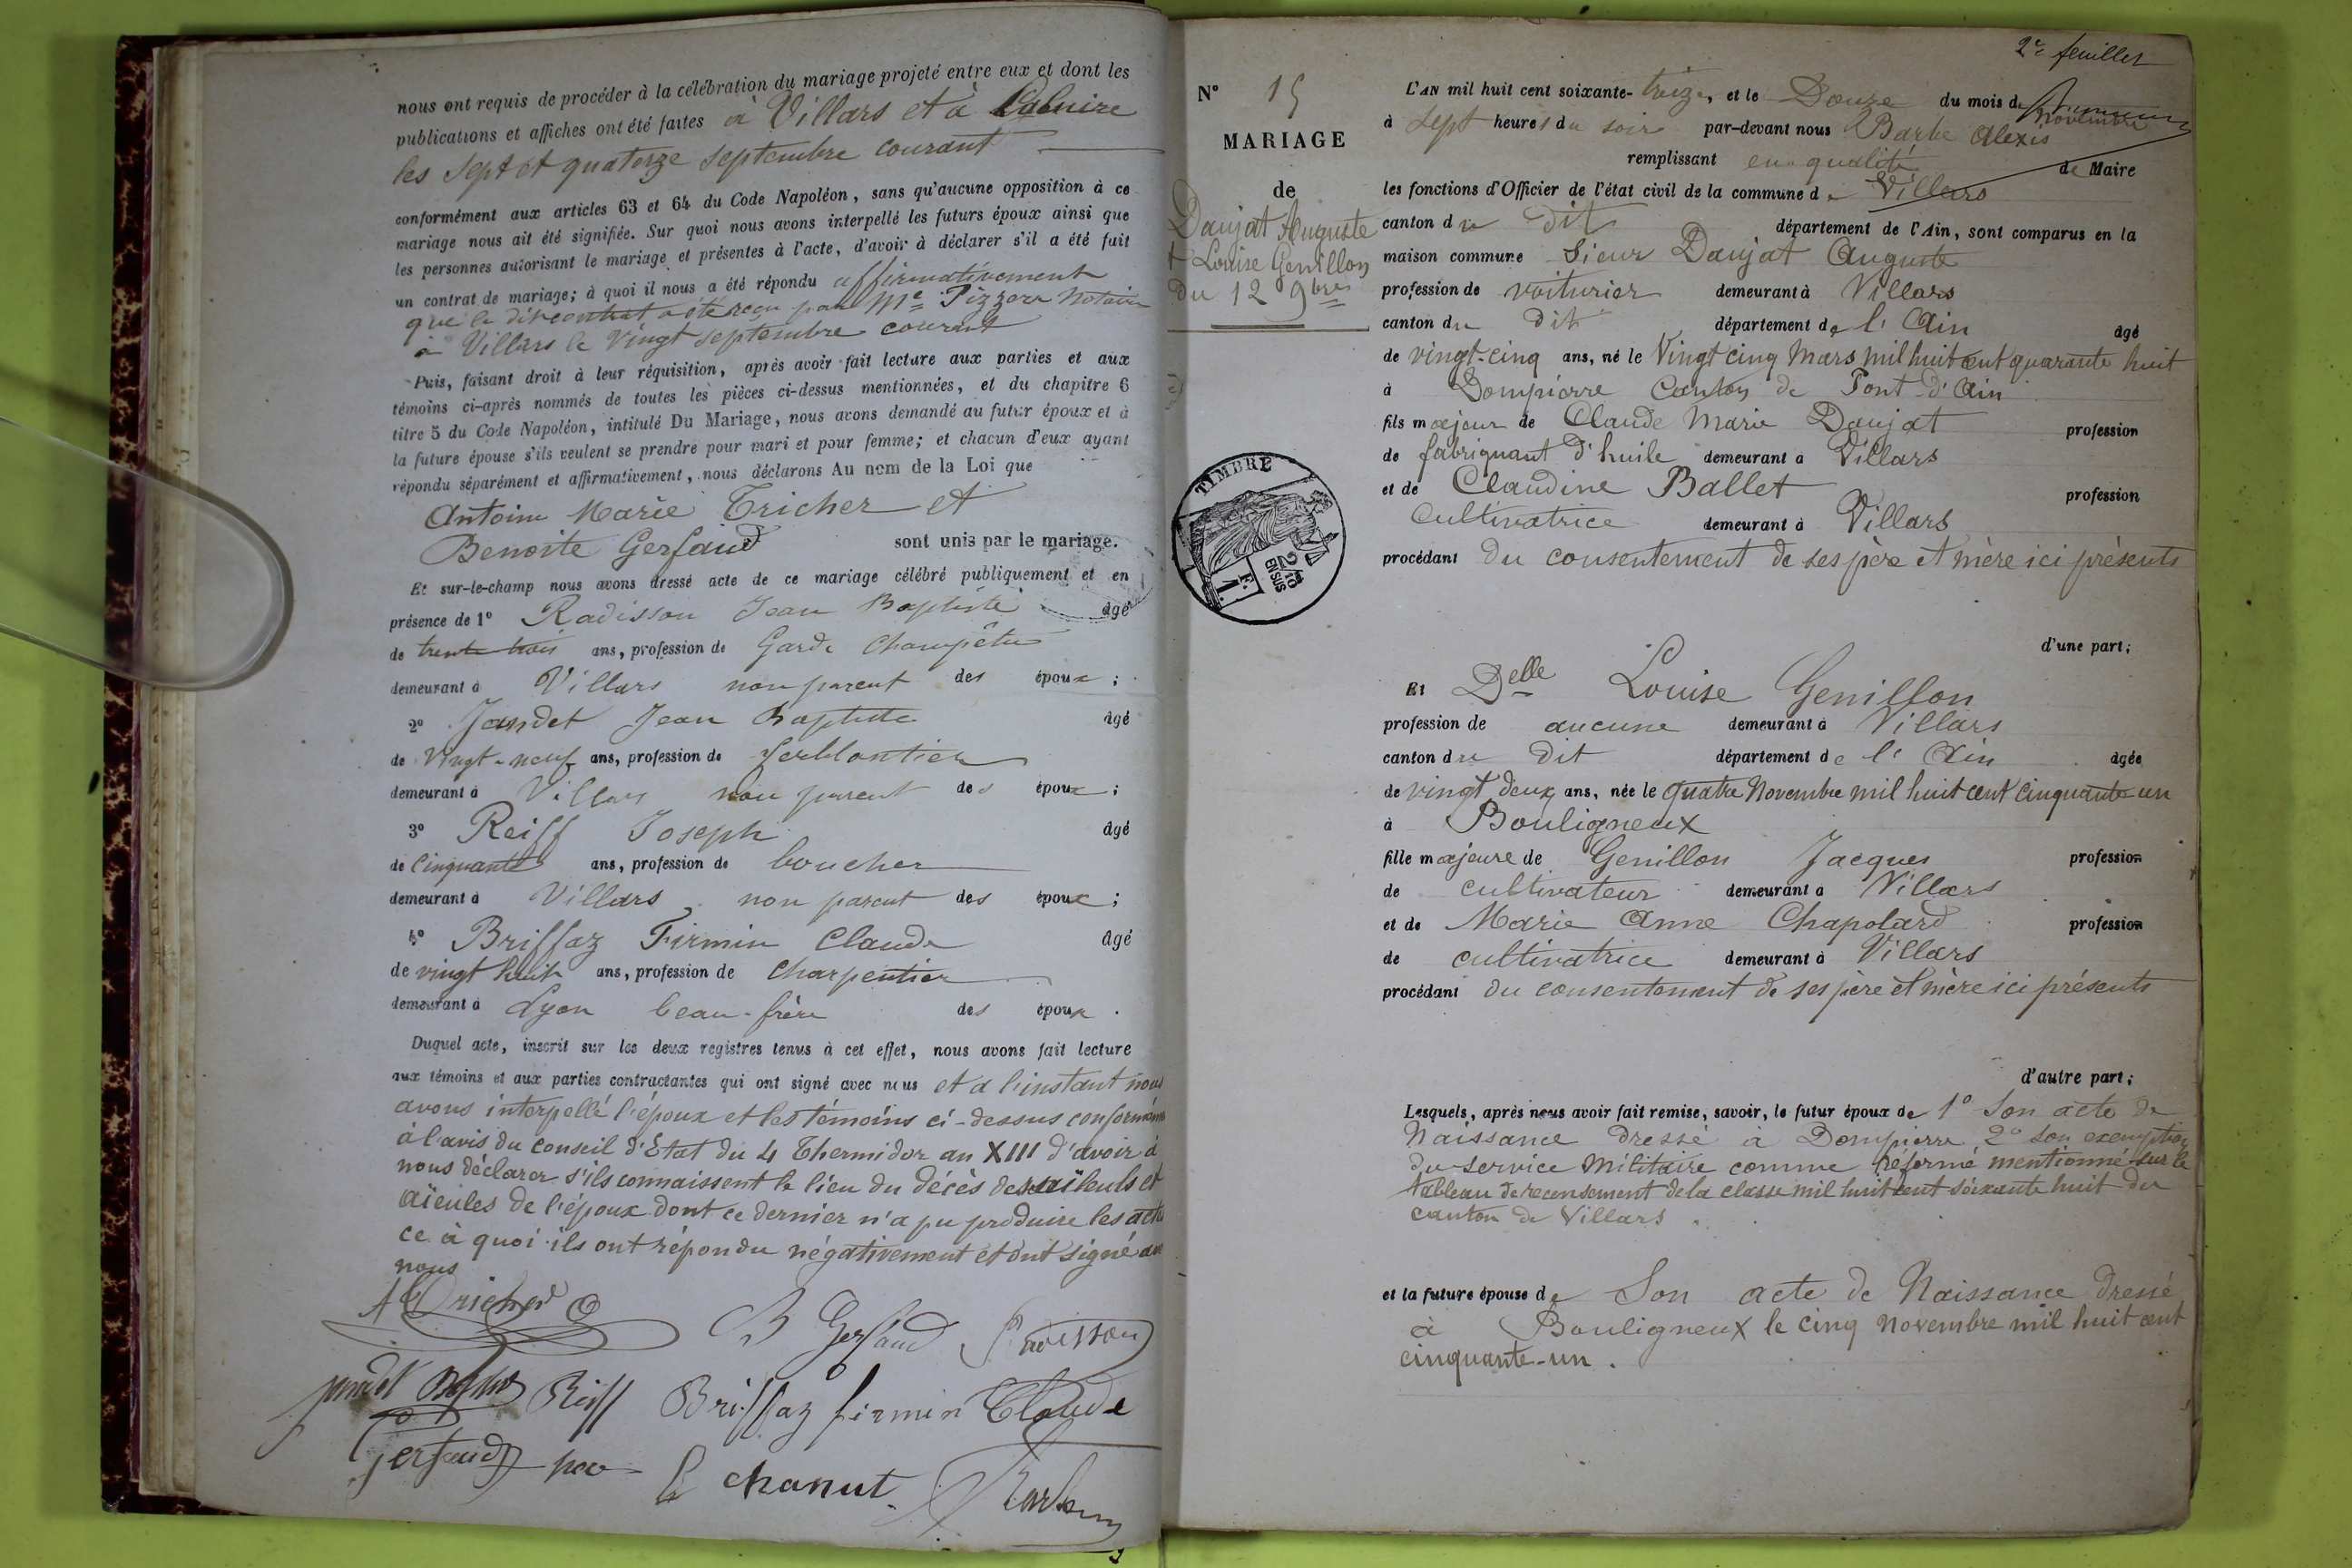 nous ont requis de procéder à la célébration du mariage projeté entre eux et dont les
publications et affiches ont été faites à Villars et à
les Sept et quatorze Septembre courant
conformément aux articles 63 et 64 du Code Napoléon, sans qu'aucune opposition à ce
mariage nous ait été signifiée. Sur quoi nous avons interpellé les futurs époux ainsi que
les personnes autorisant le mariage et présentes à l'acte, d'avoir à déclarer s'il a été fait
un contrat de mariage; à quoi il nous a été répondu affirmativement
que le dit contrat a été reçu par Me Pizzera Notaire
à Villars le Vingt septembre courant
Puis, faisant droit à leur réquisition, après avoir fait lecture aux parties et aux
témoins ci-après nommés de toutes les pièces ci-dessus mentionnées, et du chapitre 6
titre 5 du Code Napoléon, intitulé Du Mariage, nous avons demandé au futur époux et à
la future épouse s'ils veulent se prendre pour mari et pour femme; et chacun d'eux ayant
répondu séparément et affirmativement, nous déclarons Au nom de la Loi que
Antoine Marie Tricher et
Benoite Gerfaud sont unis par le mariage.
Et sur-le-champ nous avons dressé acte de ce mariage célébré publiquement et en
présence de 1° Radisson Jean Baptiste âgé
de trente trois ans, profession de Garde Champêtre
demeurant à Villars non parent des époux ;
2° Jandet Jean Baptiste âgé
de Vingt-neuf ans, profession de ferblantier
demeurant à Villars non parent des époux ;
3° Reiff Joseph âgé
de Cinquante ans, profession de boucher
demeurant à Villars non parent des époux ;
4° Briffaz Firmin Claude âgé
de vingt huit ans, profession de Charpentier
demeurant à Lyon beau-frère des époux .
Duquel acte, inscrit sur les deux registres tenus à cet effet, nous avons fait lecture
aux témoins et aux parties contractantes qui ont signé avec nous et a l'instant nous
avons interpellé l'époux et les témoins ci-dessus conformém
à l'avis du conseil d'Etat du 4 Thermidor an XIII d'avoir à
nous déclarer s'ils connaissent le lieu du décès des aïeuls et
aïeules de l'époux dont ce dernier n'a pu produire les actes
ce à quoi ils ont répondu négativement et ont signé avec
nous
A Tricher B Gerfaud Radisson
Jandet Reiff Briffaz firmin Claude
Gerfaud chanut Barbe
2e feuillet
N° 15
MARIAGE
de
Daujat Auguste
et Louise Genillon
Du 12 9bre
TIMBRE
2/10
EN SUS
1 F.
L'AN mil huit cent soixante-treize, et le Douze du mois de Novembre
à Sept heures du soir par-devant nous Barbe Alexis
remplissant en qualité de Maire
les fonctions d'Officier de l'état civil de la commune de Villars
canton du dit département de l'Ain, sont comparus en la
maison commune Sieur Daujat Auguste
profession de voiturier demeurant à Villars
canton du dit département de l'Ain âgé
de vingt-cinq ans, né le Vingt cinq Mars mil huit cent quarante huit
à Dompierre Canton de Pont-d'Ain
fils majeur de Claude Marie Daujat profession
de fabriquant d'huile demeurant à Villars
et de Claudine Ballet profession
Cultivatrice demeurant à Villars
procédant du consentement de ses père et mère ici présents
d'une part;
Et Delle Louise Genillon
profession de aucune demeurant à Villars
canton du dit département de l'Ain âgée
de vingt deux ans, née le quatre Novembre mil huit cent cinquante-un
à Bouligneux
fille majeure de Genillon Jacques profession
de cultivateur demeurant à Villars
et de Marie Anne Chapolard profession
de cultivatrice demeurant à Villars
procédant du consentement de ses père et mère ici présents
d'autre part;
Lesquels, après nous avoir fait remise, savoir, le futur époux de 1° Son acte de
Naissance dressé à Dompierre 2° son exemption
du service Militaire comme réformé mentionné sur le
tableau de recensement de la classe mil huit cent soixante huit du
canton de Villars .
et la future épouse de Son acte de Naissance dressé
à Bouligneux le cinq novembre mil huit cent
cinquante-un .